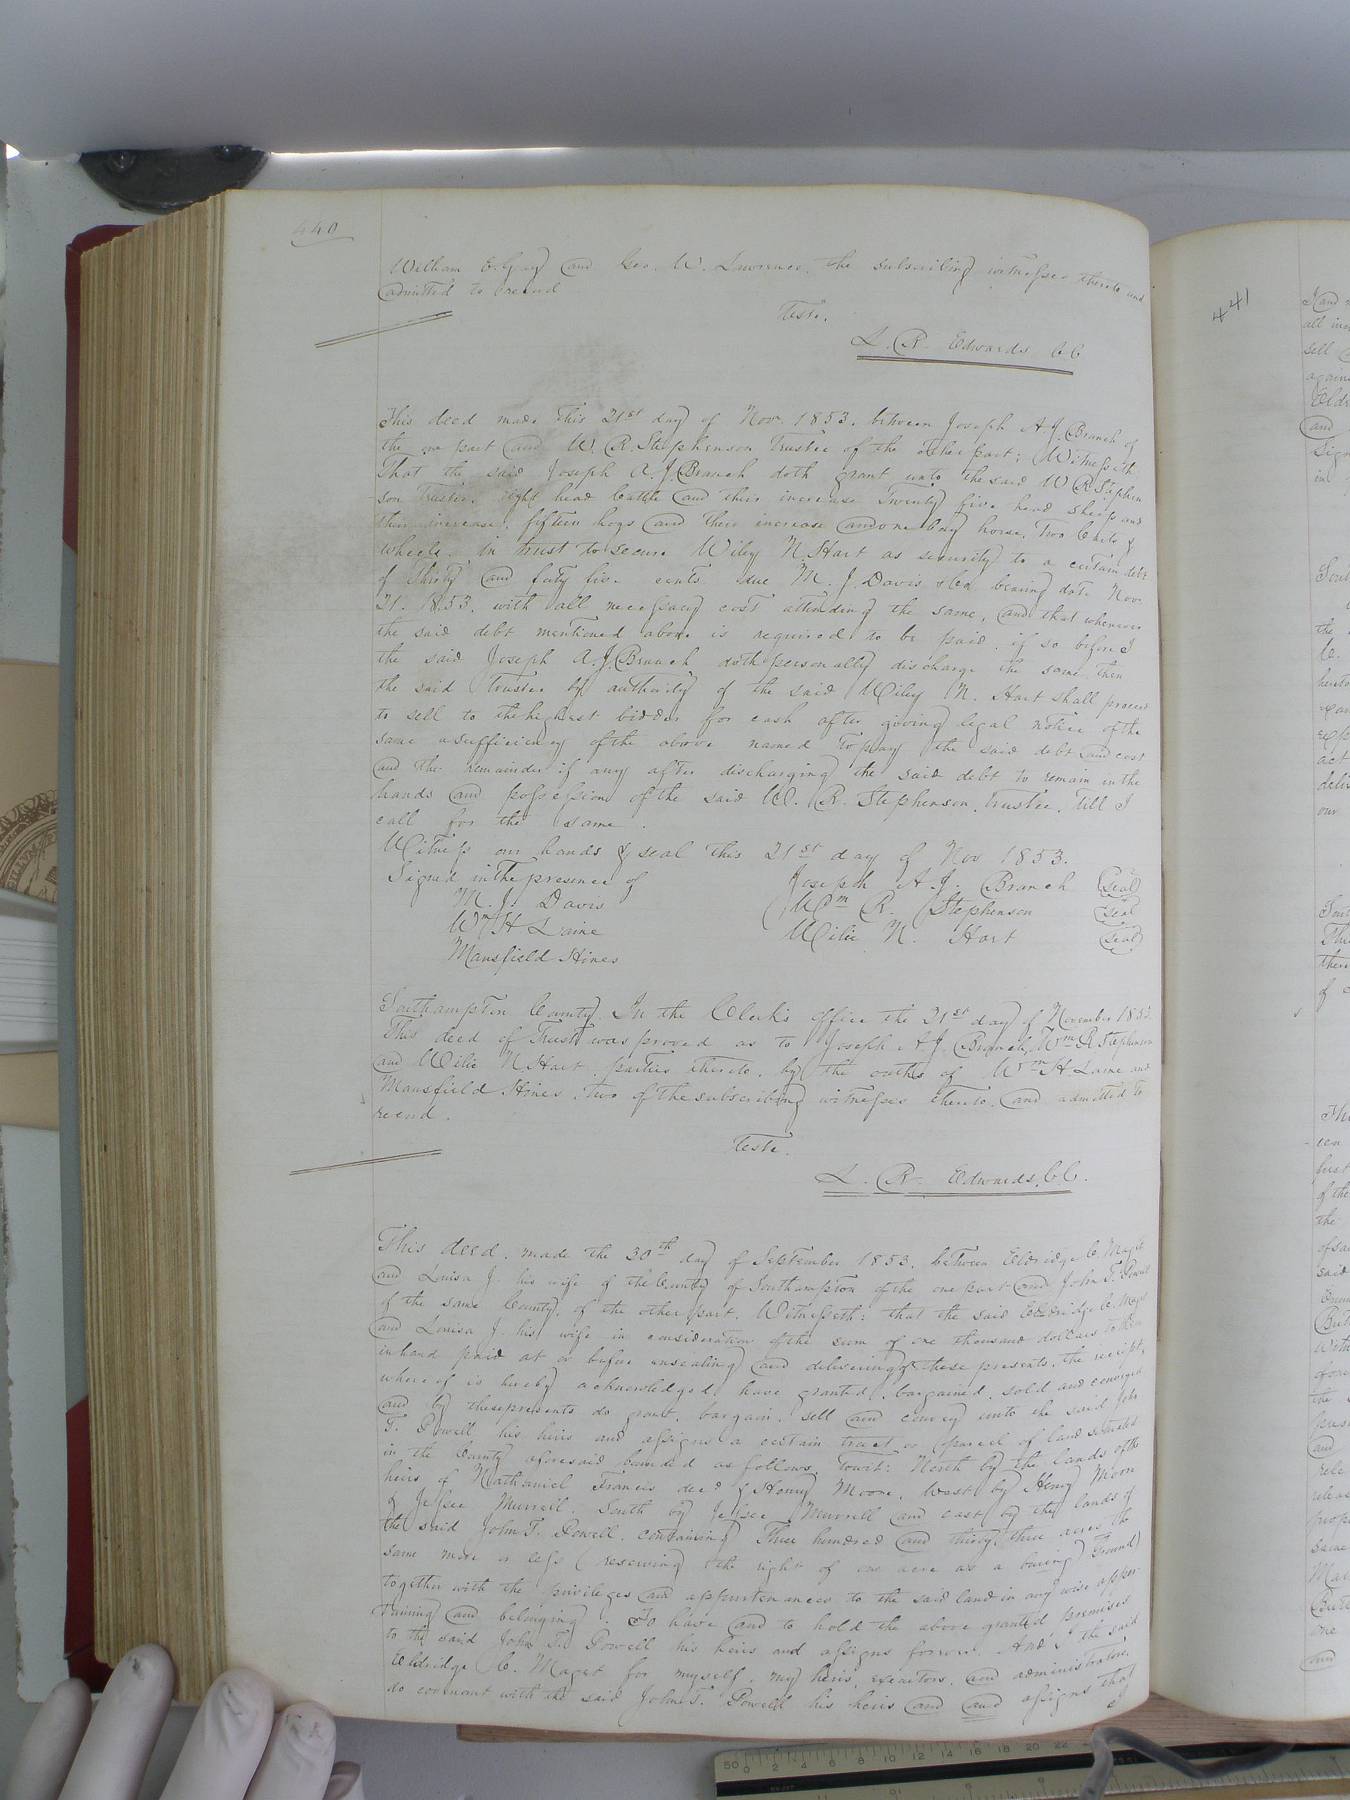 440
William E. Gay and Geo. W. Lawrence, the subscribing witnesses thereto and
admitted to record
Teste.
L. R. Edwards C C
This deed made this 21st day of Nov. 1853. between Joseph A. J. Branch of
the one part and W. R. Stephenson Trustee of the other part: Witnesseth
That the said Joseph A. J. Branch doth grant unto the said W R Stephen
son Trustee, eight head Cattle and their increase Twenty five head sheep and
their increase, fifteen hogs and their increase and one bay horse, Two Carts &
wheels. in trust to secure Wiley N. Hart as security to a certain debt
of Thirty and forty five cents due M. J. Davis & Co bearing date Nov.
21. 1853. with all necessary cost attending the same, and that whenever
the said debt mentioned above is required to be paid. if so before I
the said Joseph A. J. Branch doth personally discharge the same then
the said trustee by authority of the said Wiley N. Hart shall proceed
to sell to the highest bidder for cash after giving legal notice of the
same a sufficiency of the above named to pay the said debt and cost
and the remainder if any after discharging the said debt to remain in the
hands and possession of the said W. R. Stephenson, trustee, Till I
call for the same.
Witness our hands & seal this 21st day of Nov 1853.
Signed in the presence of
Joseph A. J. Branch (seal)
M. J. Davis
Wm R. Stephenson (seal
Wm H Laine
Wilie N. Hart (seal)
Mansfield Hines
Southampton County. In the Clerk's Office the 21st day of November 1853.
This deed of Trust was proved as to Joseph A J. Branch, Wm R Stephenson
and Wilie N Hart, parties thereto, by the oaths of Wm H Laine and
Mansfield Hines, two of the subscribing witnesses thereto, and admitted to
record.
Teste.
L. R. Edwards, C C.
This deed, made the 30th day of September 1853, between Eldridge C. Maget
and Louisa J. his wife of the County of Southampton of the one part and John T. Powell
of the same County, of the other part. Witnesseth: that the said Eldridge C. Maget
and Louisa J. his wife in consideration of the sum of one thousand dollars to them
in hand paid at or before unsealing and delivering of these presents, the receipt,
where of is hereby acknowledged, have granted, bargained, sold and conveyed
and by these presents do grant, bargain, sell and convey unto the said John
T. Powell his heirs and assigns a certain tract or parcel of land situated
in the County aforesaid bounded as follows, Towit: North by the lands of the
heirs of Nathaniel Francis decd & Henry Moore, West by Henry Moore
& Jessee Murrell. South by Jessee Murrell and east by the lands of
the said John T. Powell. containing Three hundred and thirty three acres
same more or less (reserving the right of one acre as a buring Ground)
together with the privileges and appurtenances to the said land in any wise apper-
taining and belonging. To have and to hold the above granted premises
to the said John T. Powell his heirs and assigns forever. And I the said
Eldridge C. Maget for myself, my heirs, executors, and administrators.
do covenant with the said John T. Powell his heirs and and assigns that
441